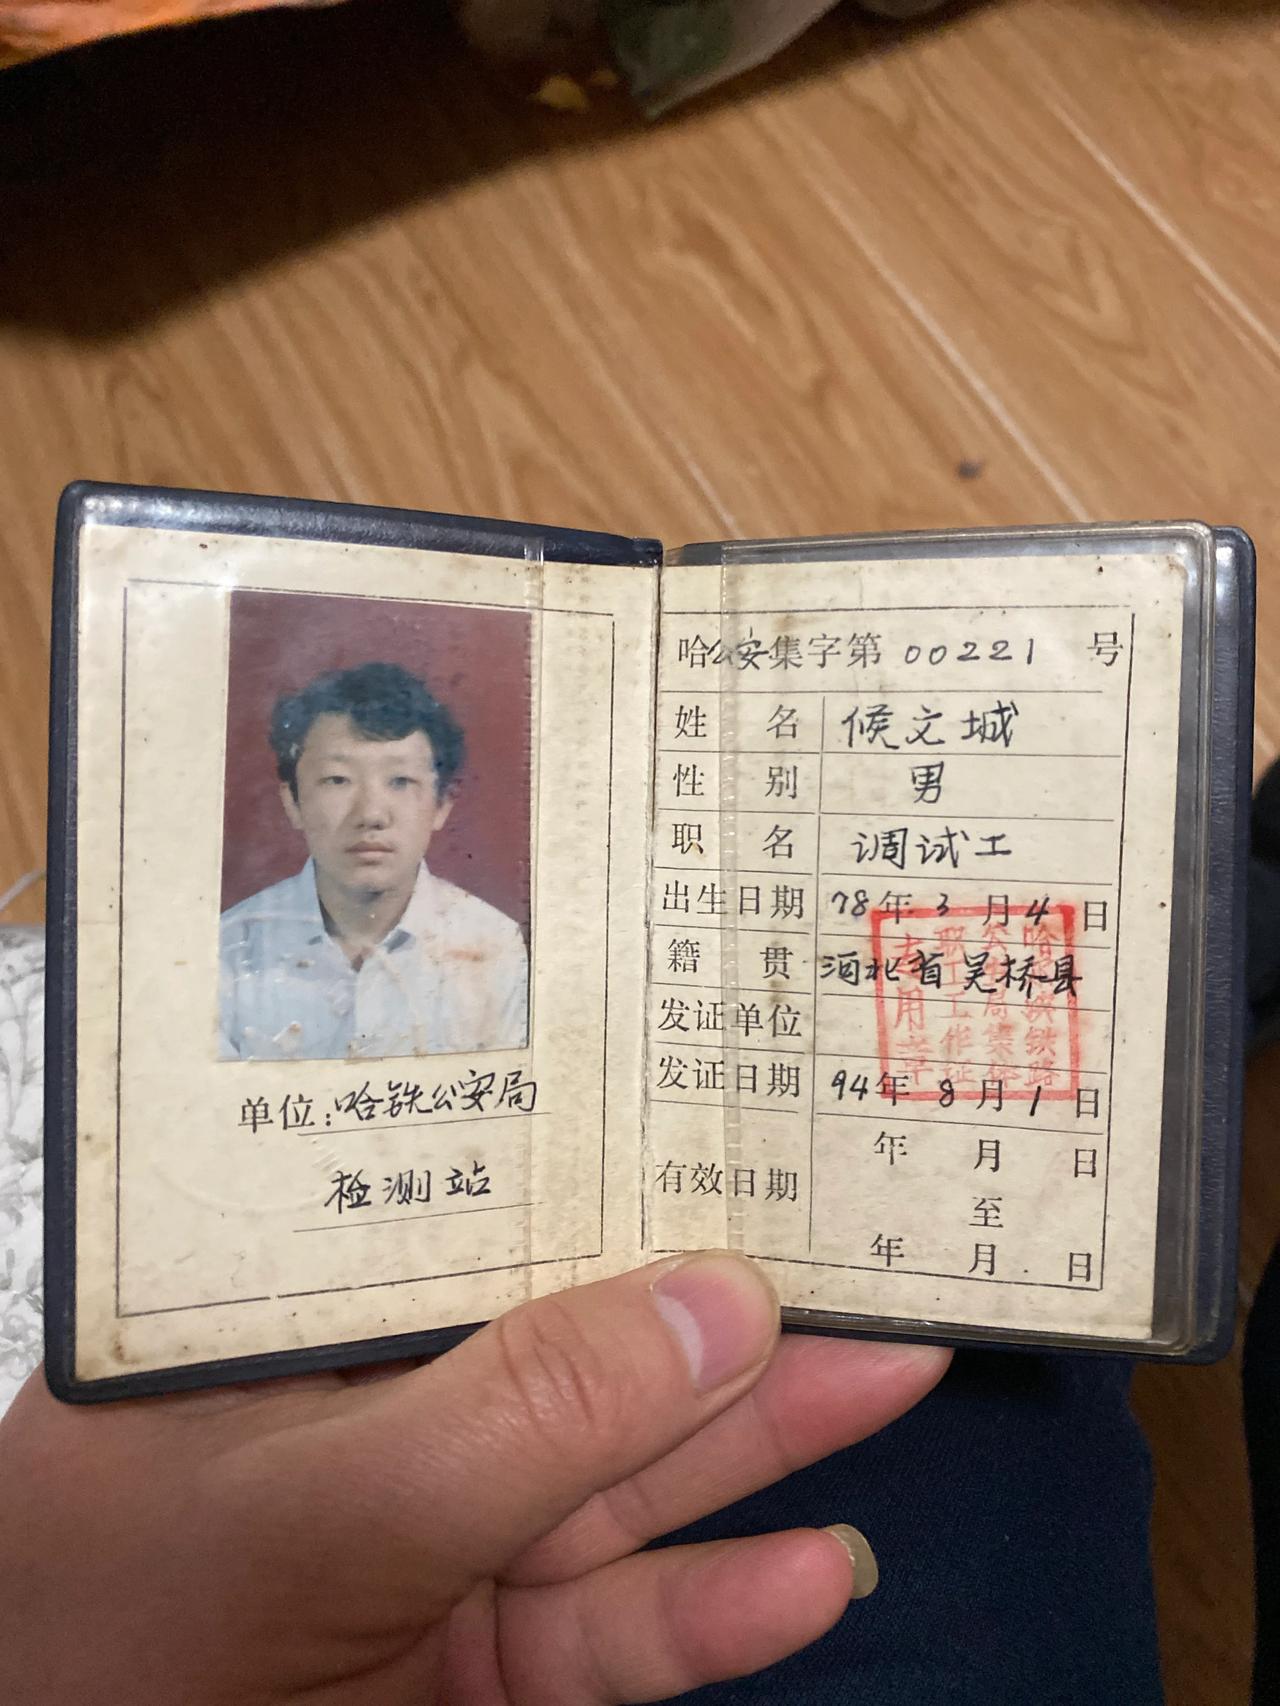 单位:哈铁公安局
检测站
哈公安集字第 00221 号
姓名 候文城
性别 男
职名 调试工
出生日期 78年3月4日
籍贯 河北省吴桥县
发证单位
发证日期 94年8月1日
有效日期 年月日
至
年月日
哈尔滨铁路
公安局集体
职工工作证
专用章